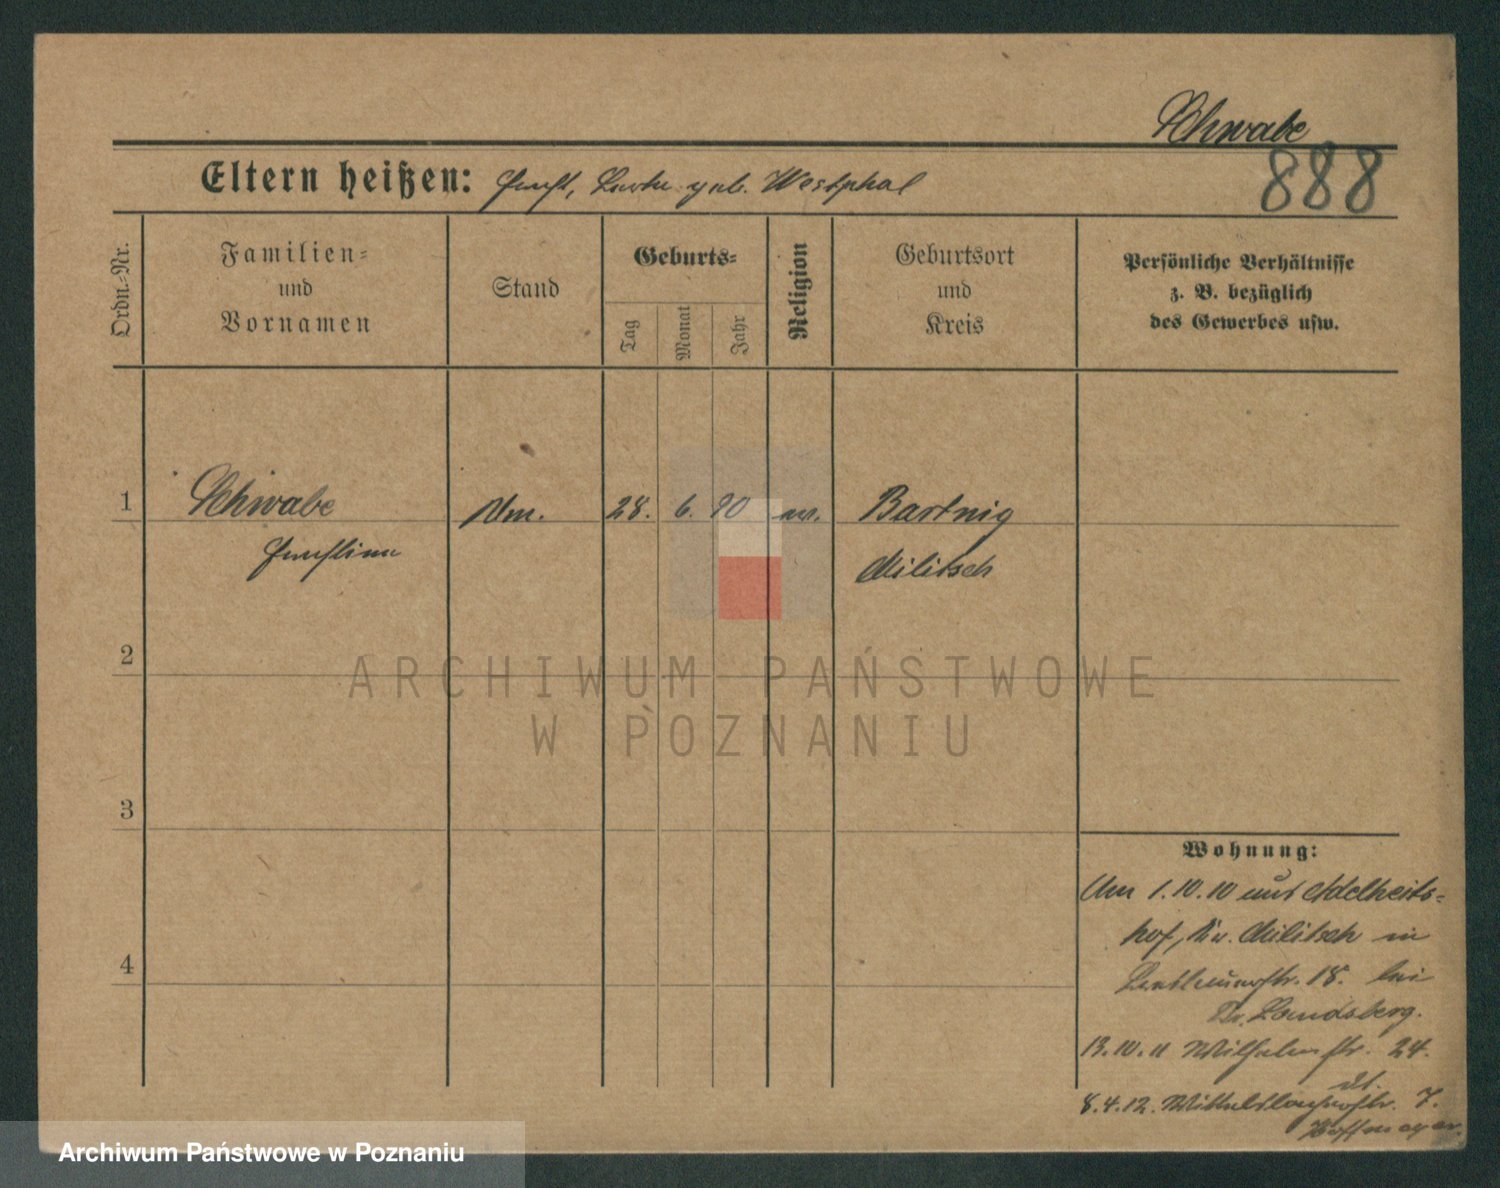 Schwabe
888
Eltern heißen: Ernst, geb. Westphal
Ordn.-Nr.
Familien-
und
Vornamen
Stand
Geburts-
Tag
Monat
Jahr
Religion
Geburtsort
und
Kreis
Persönliche Verhältnisse
z. B. bezüglich
des Gewerbes usw.
1
Schwabe
28. 6. 90
ev.
Bartnig
Ernstine
Militsch
2
ARCHIWUM PAŃSTWOWE
W POZNANIU
3
4
Wohnung:
Am 1.10.10 aus Adelheids-
hof, Kr. Militsch in
18. bei
Dr. Landsberg.
13.10.11 Wilhelmstr. 24.
8.4.12. 7.
Hoffmeyer
Archiwum Państwowe w Poznaniu